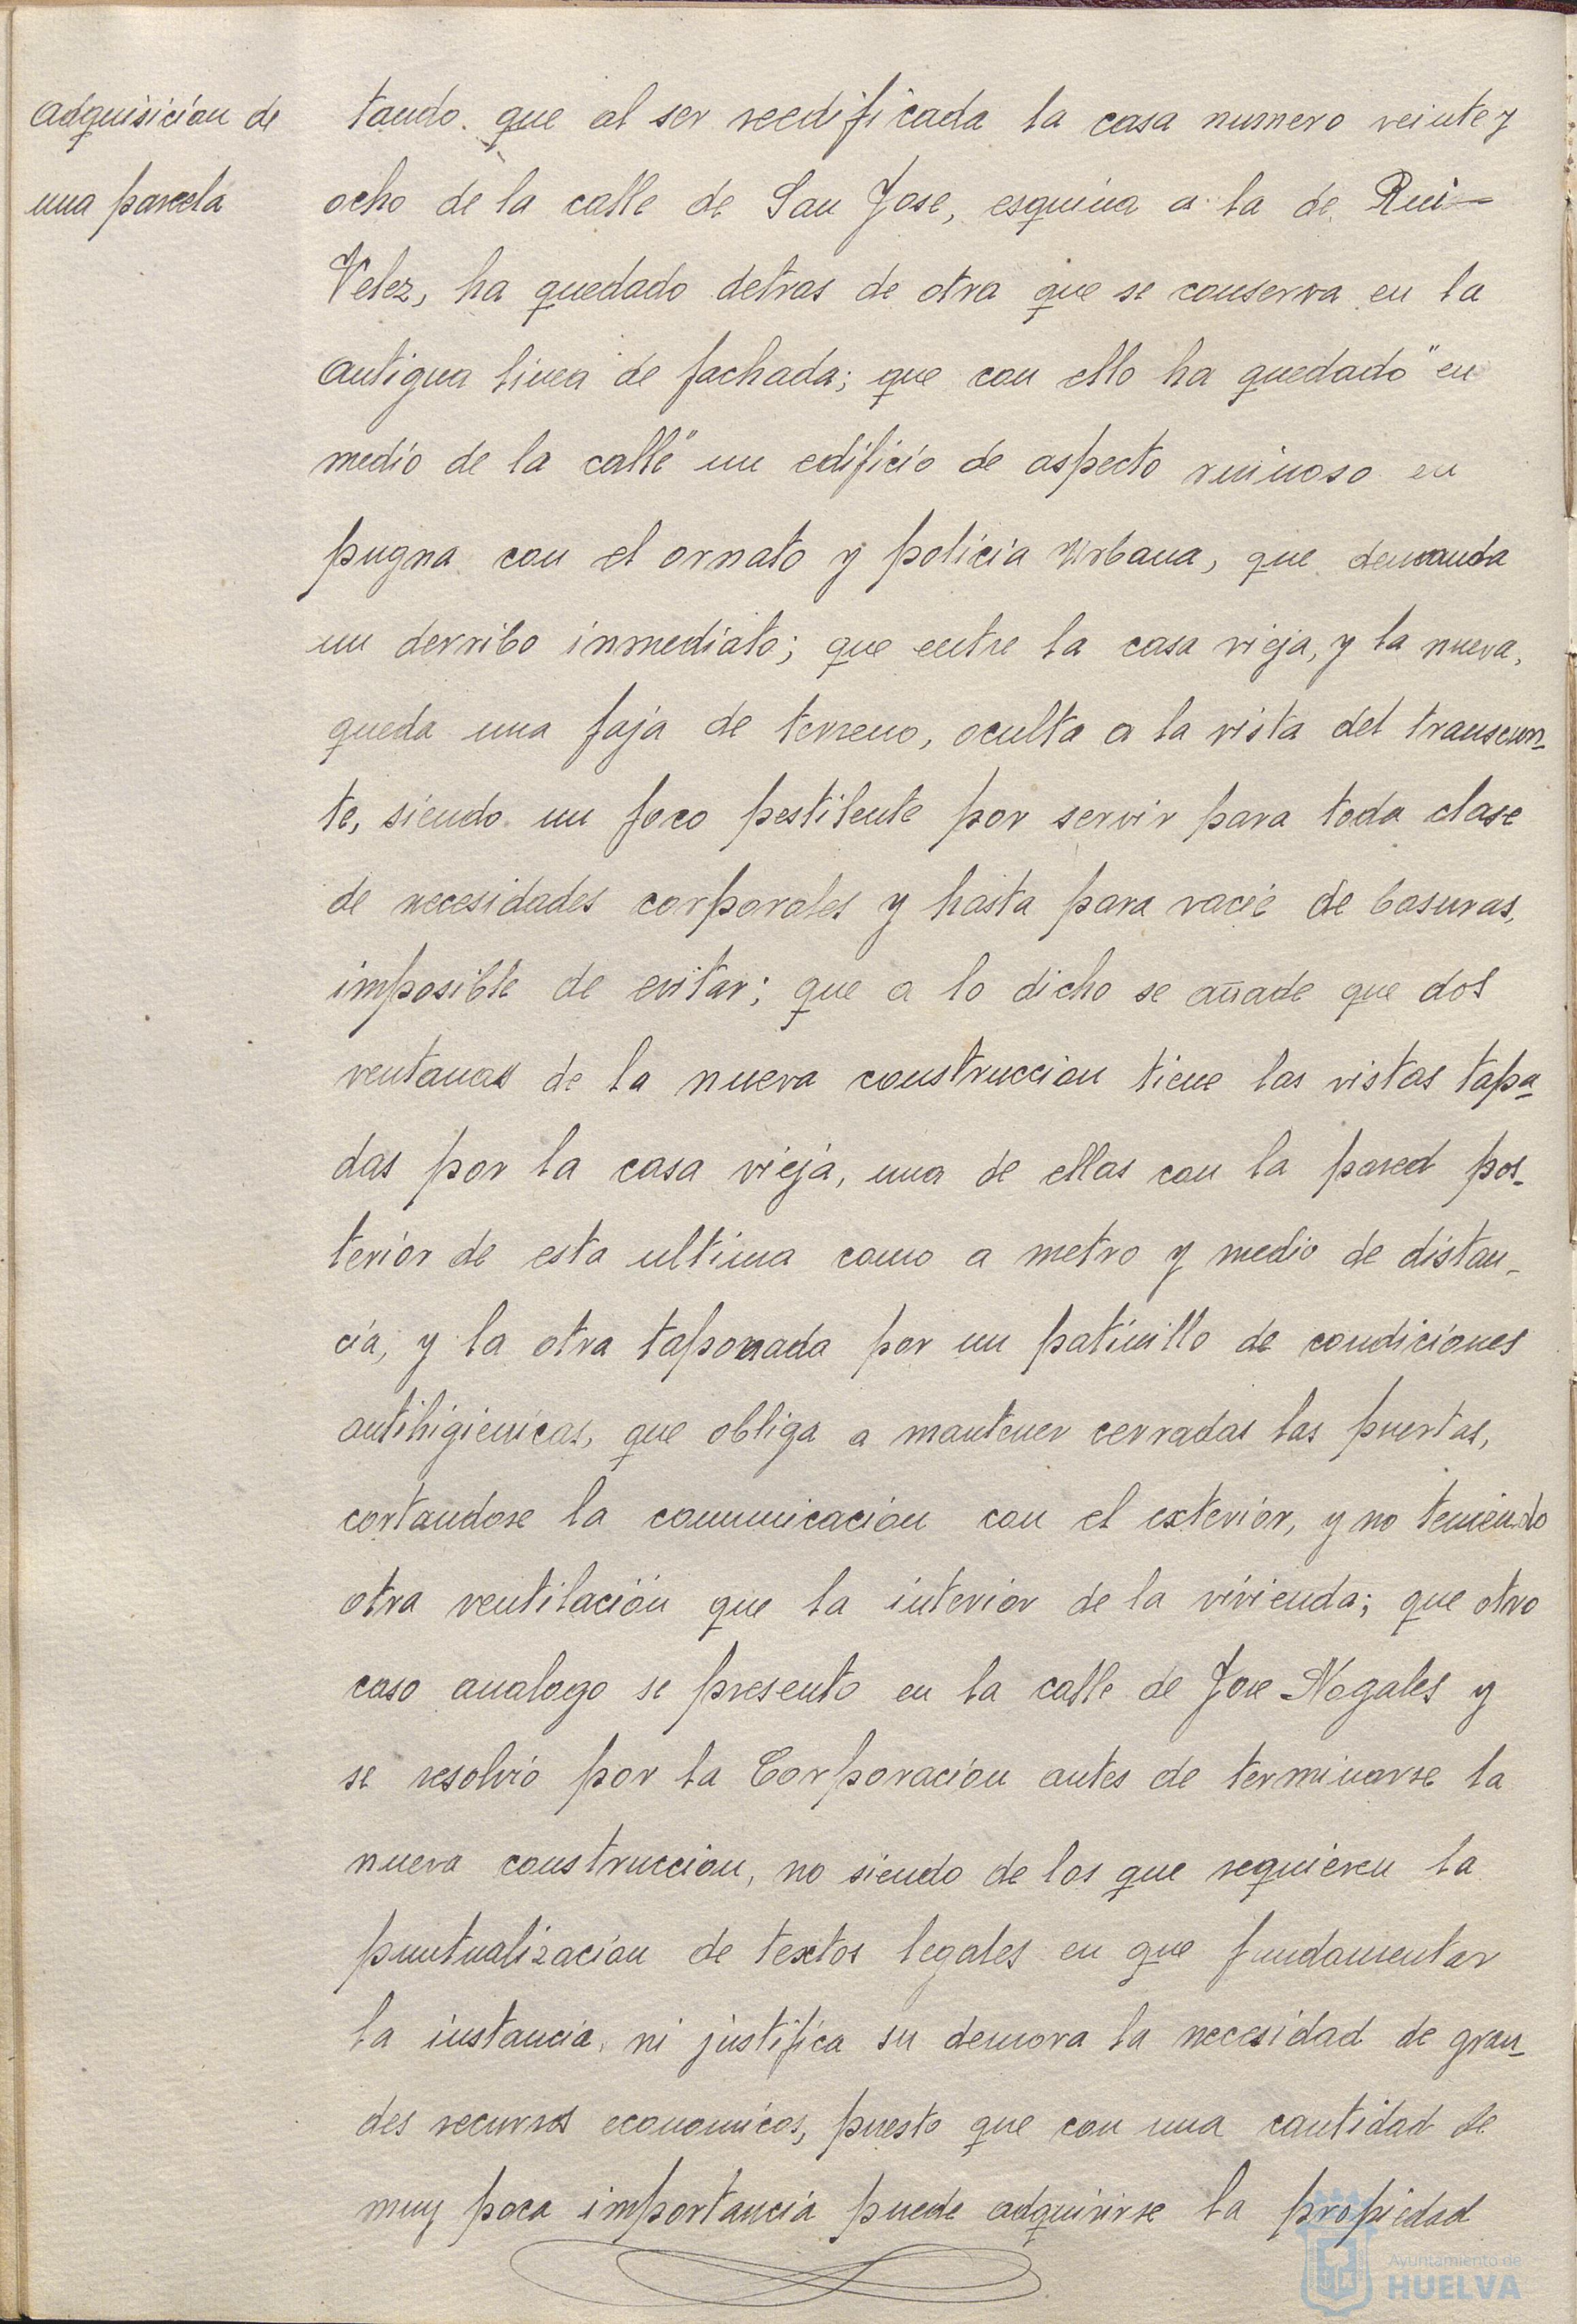 adquisicion de
una parcela
tando que al ser reedificada la casa numero veinte y
ocho de la calle de San Jose, esquina a la de Rui-
Velez, ha quedado detras de otra que se conserva en la
antigua linea de fachada; que con ello ha quedado "en
medio de la calle" un edificio de aspecto ruinoso en
pugna con el ornato y policia Urbana, que demanda
un derribo inmediato; que entre la casa vieja, y la nueva,
queda una faja de terreno, oculta a la vista del transeun-
te, siendo un foco pestilente por servir para toda clase
de necesidades corporales y hasta para vacie de basuras,
imposible de evitar; que a lo dicho se añade que dos
ventanas de la nueva construccion tiene las vistas tapa-
das por la casa vieja, una de ellas con la pared pos-
terior de esta ultima como a metro y medio de distan-
cia, y la otra taponada por un patinillo de condiciones
antihigienicas, que obliga a mantener cerradas las puertas,
cortandose la comunicacion con el exterior, y no teniendo
otra ventilación que la interior de la vivienda; que otro
caso analogo se presento en la calle de Jose Nogales y
se resolvió por la Corporacion antes de terminarse la
nueva construccion, no siendo de los que requieren la
puntualizacion de textos legales en que fundamentar
la instancia, ni justifica su demora la necesidad de gran-
des recursos economicos, puesto que con una cantidad de
muy poca importancia puede adquirirse la propiedad
Ayuntamiento de
HUELVA